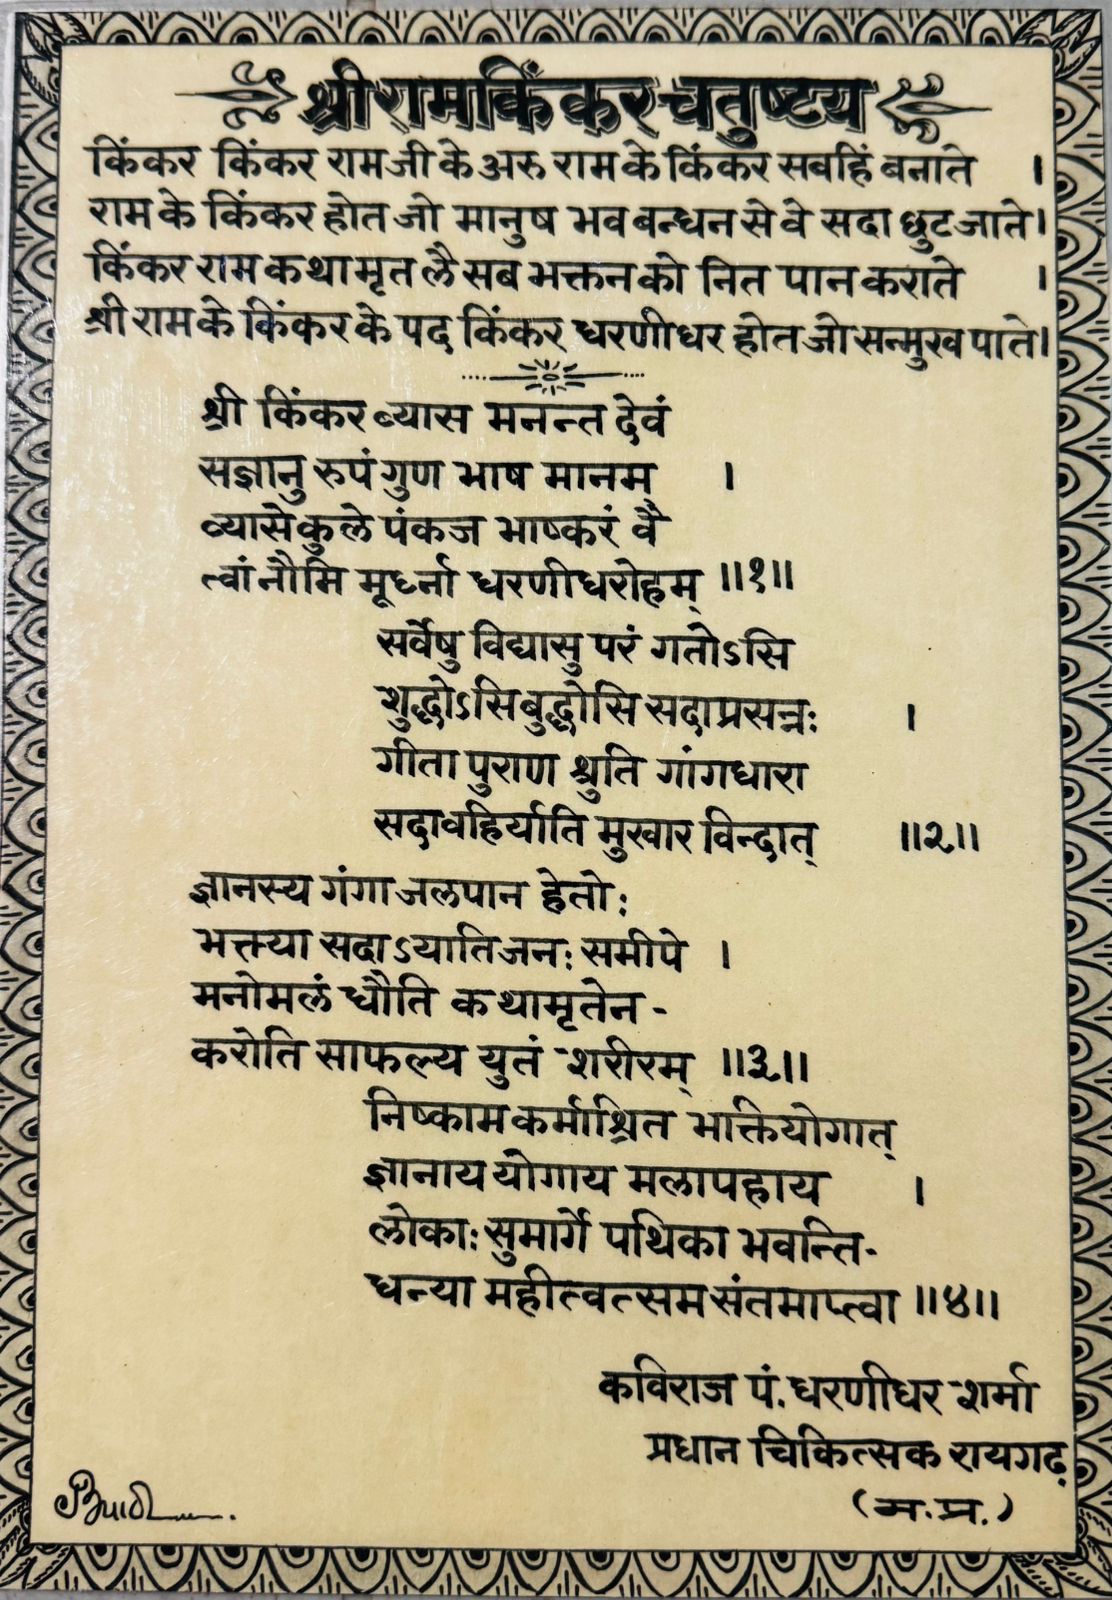 श्रीरामकिंकरचतुष्टय
किंकर किंकर रामजी के अरु राम के किंकर सबहिं बनाते ।
राम के किंकर होत जो मानुष भव बन्धन से वे सदा छुट जाते।
किंकर राम कथामृत लै सब भक्तन को नित पान कराते ।
श्री राम के किंकर के पद किंकर धरणीधर होत जो सन्मुख पाते।
श्री किंकर व्यास मनन्त देवं
सज्ञानु रुपं गुण भाष मानम् ।
व्यासेकुले पंकज भाष्करं वै
त्वां नौमि मूर्ध्ना धरणीधरोहम् ॥१॥
सर्वेषु विद्यासु परं गतोऽसि
शुद्धोऽसि बुद्धोसि सदा प्रसन्नः ।
गीता पुराण श्रुति गांगधारा
सदावहिर्याति मुखार विन्दात् ॥२॥
ज्ञानस्य गंगा जलपान हेतोः
भक्तया सदाऽयाति जनः समीपे ।
मनोमलं धौति कथामृतेन -
करोति साफल्य युतं शरीरम् ॥३॥
निष्काम कर्माश्रित भाक्तियोगात्
ज्ञानाय योगाय मलापहाय ।
लोकाः सुमार्गे पथिका भवन्ति-
धन्या महीत्वत्सम संतमाप्त्वा ॥४॥
कविराज पं. धरणीधर शर्मा
प्रधान चिकित्सक रायगढ़
(म. प्र.)